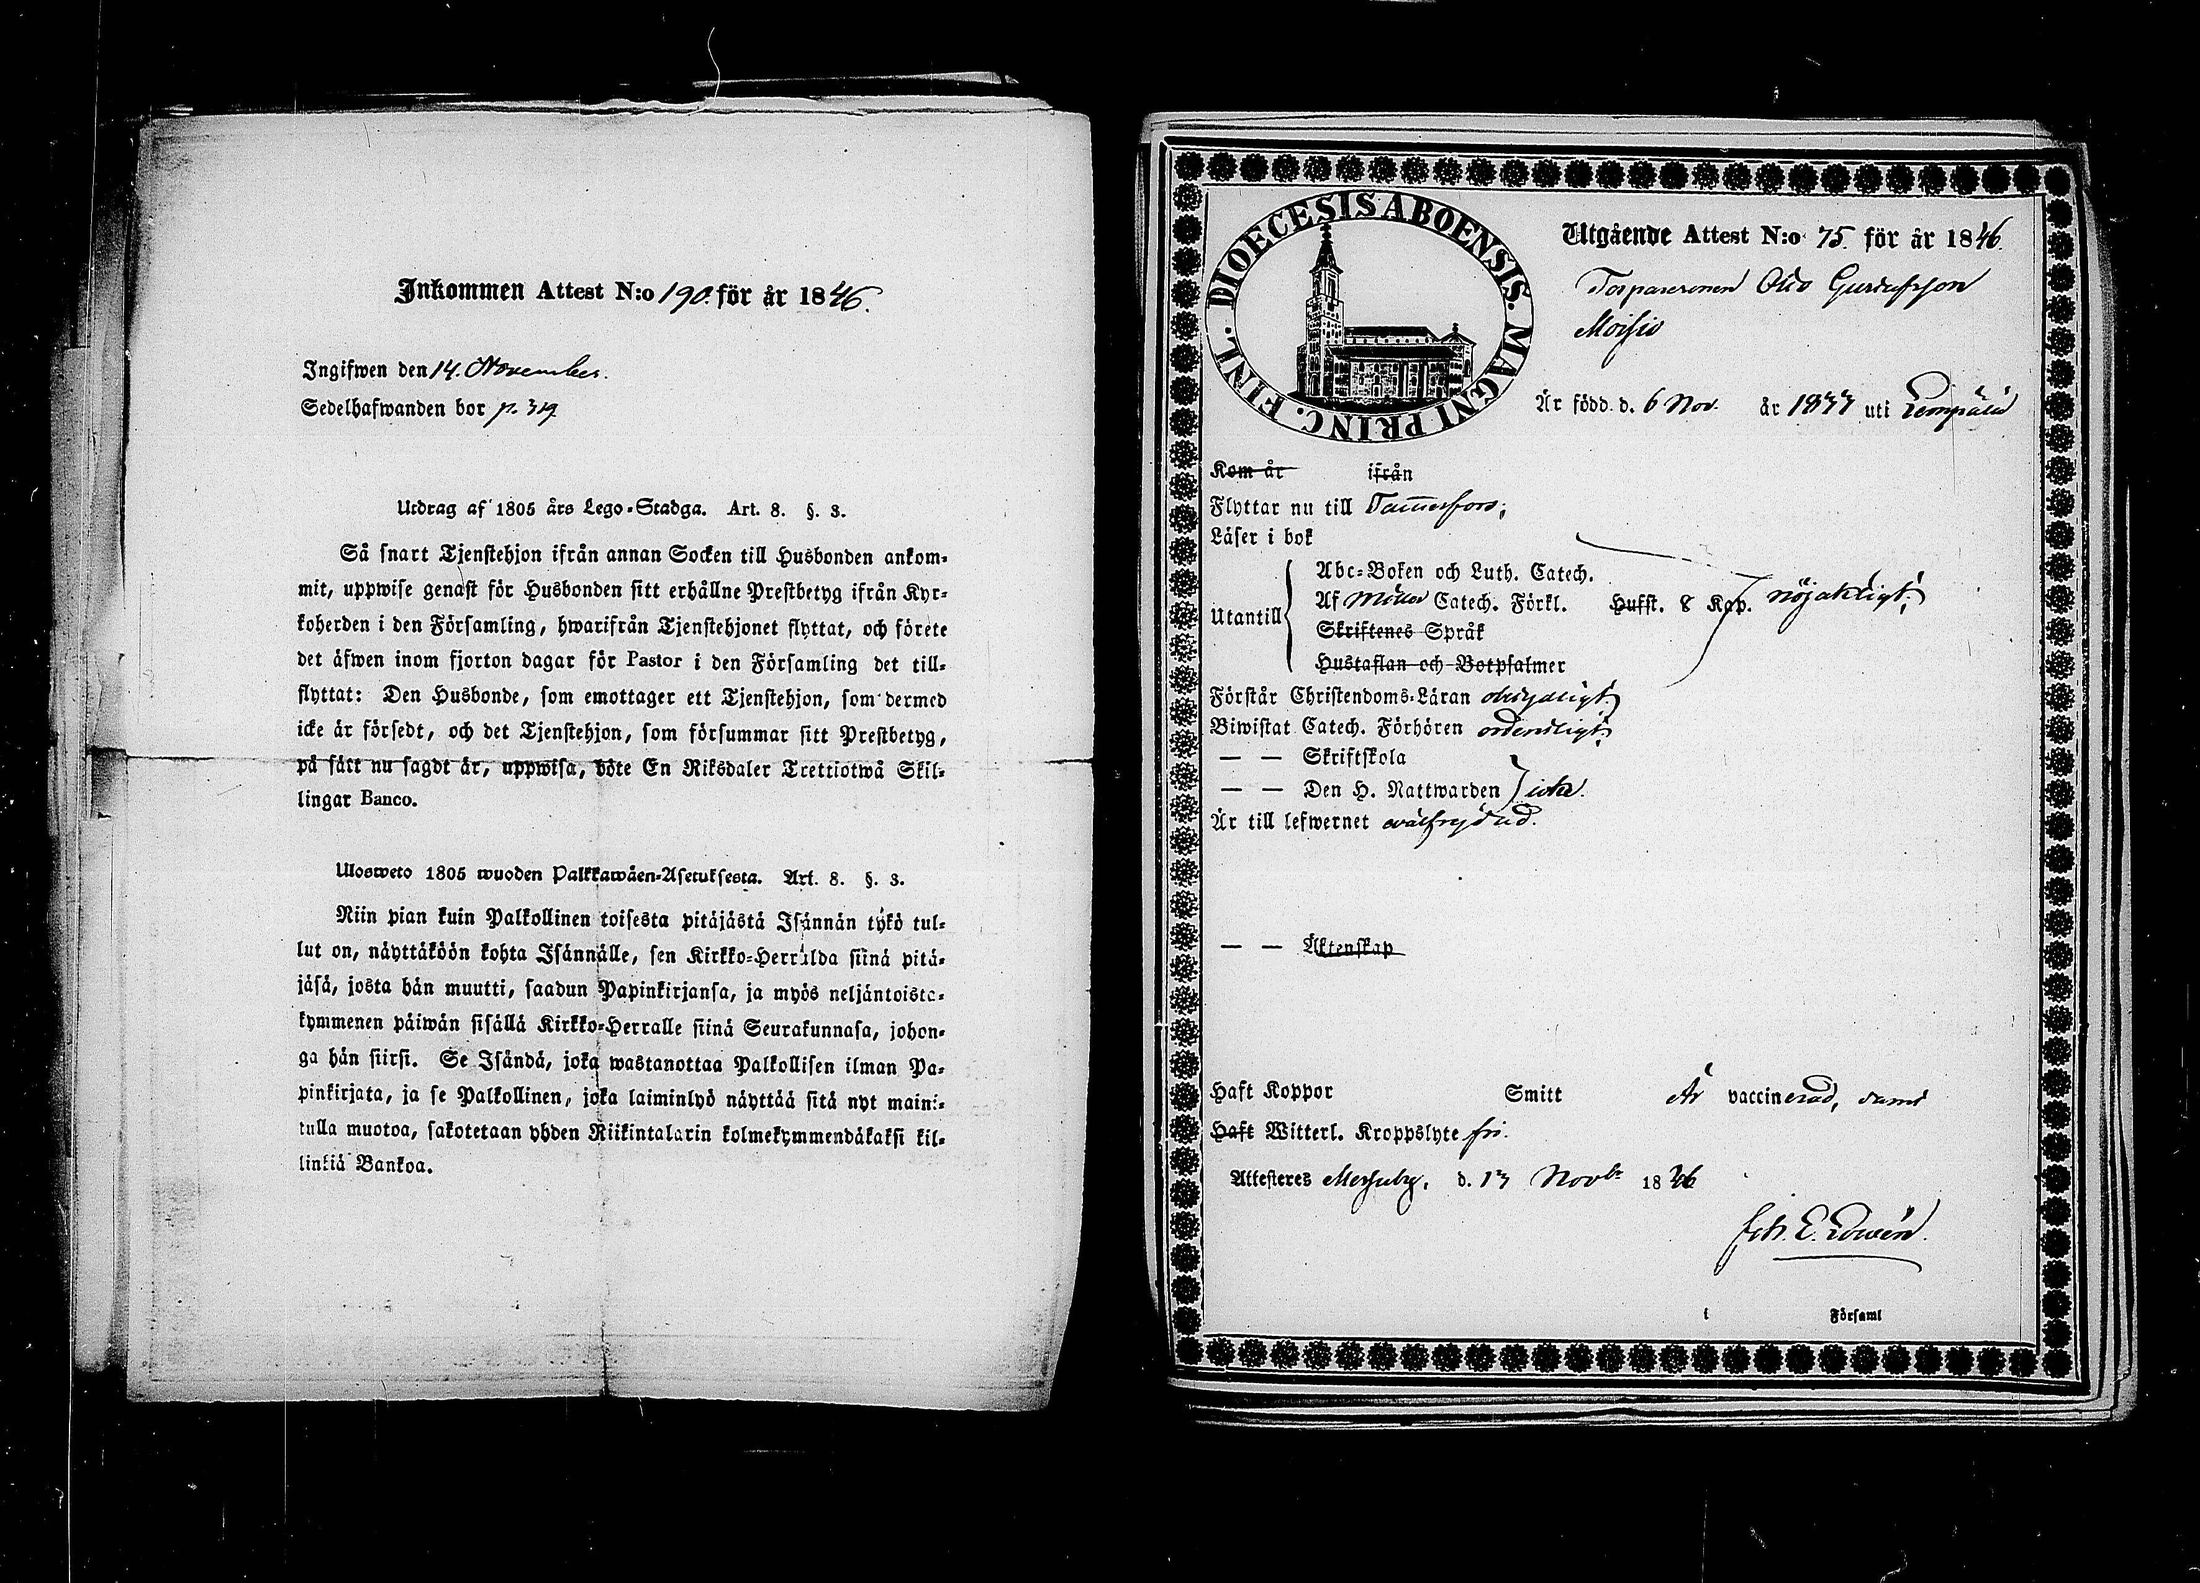 Inkommen Attest N:o 190. för år 1846.
Ingifwen den 14. November.
Sedelhafwanden bor p. 319
Utdrag af 1805 års Lego-Stadga. Art. 8. §. 3.
Så snart Tjenstehjon ifrån annan Socken till Husbonden ankom-
mit, uppwise genast för Husbonden sitt erhållne Prestbetyg ifrån Kyr-
koherden i den Församling, hwarifrån Tjenstehjonet flyttat, och förete
det äfwen inom fjorton dagar för Pastor i den Församling det till-
flyttat: Den Husbonde, som emottager ett Tjenstehjon, som dermed
icke är försedt, och det Tjenstehjon, som försummar sitt Prestbetyg,
på sätt nu sagdt är, uppwisa, böte En Riksdaler Trettiotwå Skil-
lingar Banco.
Ulosweto 1805 wuoden Palkkawäen-Asetuksesta. Art. 8. §. 3.
Niin pian kuin Palkollinen toisesta pitäjästä Isännän tykö tul-
lut on, näyttäköön kohta Isännälle, sen Kirkko-Herralda siinä pitä-
jäsä, josta hän muutti, saadun Papinkirjansa, ja myös neljäntoista-
kymmenen päiwän sisällä Kirkko-Herralle siinä Seurakunnasa, johon-
ga hän siirsi. Se Isändä, joka wastanottaa Palkollisen ilman Pa-
pinkirjata, ja se Palkollinen, joka laiminlyö näyttää sitä nyt maini-
tulla muotoa, sakotetaan yhden Riikintalarin kolmekymmendäkaksi kil-
linkiä Bankoa.
DIOECESIS ABOENSIS. MAGNI PRINC. FINL.
Utgående Attest N:o 75. för år 1846.
Torparesonen Otto Gustafsson
Moisio
Är född d. 6 Nov. år 1833 uti Lempälä
Kom år ifrån
Flyttar nu till Tammerfors;
Läser i bok
Utantill
Abc-Boken och Luth. Catech.
Af Möller Catech. Förkl. Husst. 8 Kap. nöjaktigt;
Skriftenes Språk
Hustaflan och Botpsalmer
Förstår Christendoms-Läran
Biwistat Catech. Förhören ordentligt;
— — Skriftskola
— — Den H. Nattwarden icke.
Är till lefwernet wälfrejdad.
— — Äktenskap
Haft Koppor Smitt Är vaccinerad, samt
Haft Witterl. Kroppslyte fri.
Attesteres Messuby, d. 13 Novbr 1846
Joh. E. Lowén.
i Församl